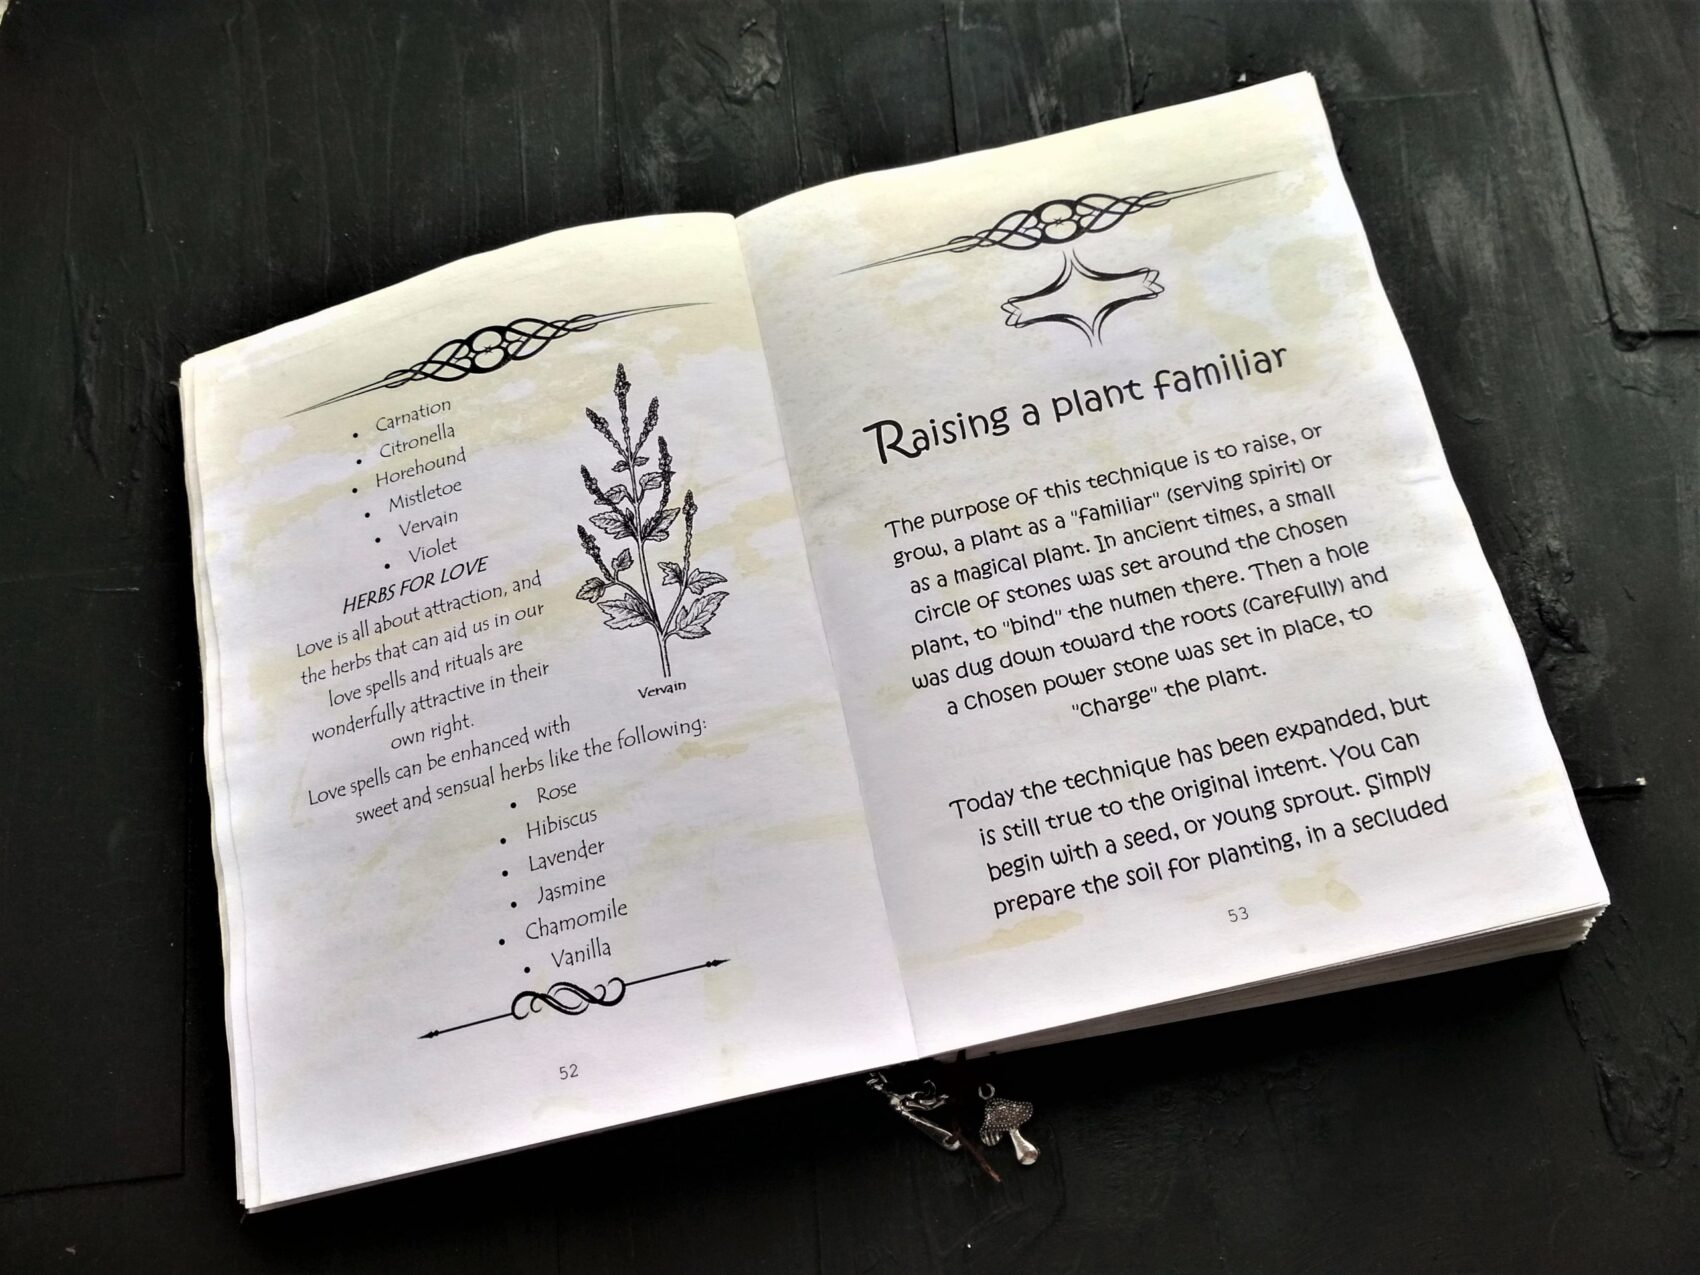 • Carnation
• Citronella
• Horehound
• Mistletoe
• Vervain
• Violet
HERBS FOR LOVE
Love is all about attraction, and
the herbs that can aid us in our
love spells and rituals are
wonderfully attractive in their
own right.
Love spells can be enhanced with
sweet and sensual herbs like the following:
• Rose
• Hibiscus
• Lavender
• Jasmine
• Chamomile
• Vanilla
Vervain
52
Raising a plant familiar
The purpose of this technique is to raise, or
grow, a plant as a "familiar" (serving spirit) or
as a magical plant. In ancient times, a small
circle of stones was set around the chosen
plant, to "bind" the numen there. Then a hole
was dug down toward the roots (carefully) and
a chosen power stone was set in place, to
"charge" the plant.
Today the technique has been expanded, but
is still true to the original intent. You can
begin with a seed, or young sprout. Simply
prepare the soil for planting, in a secluded
53